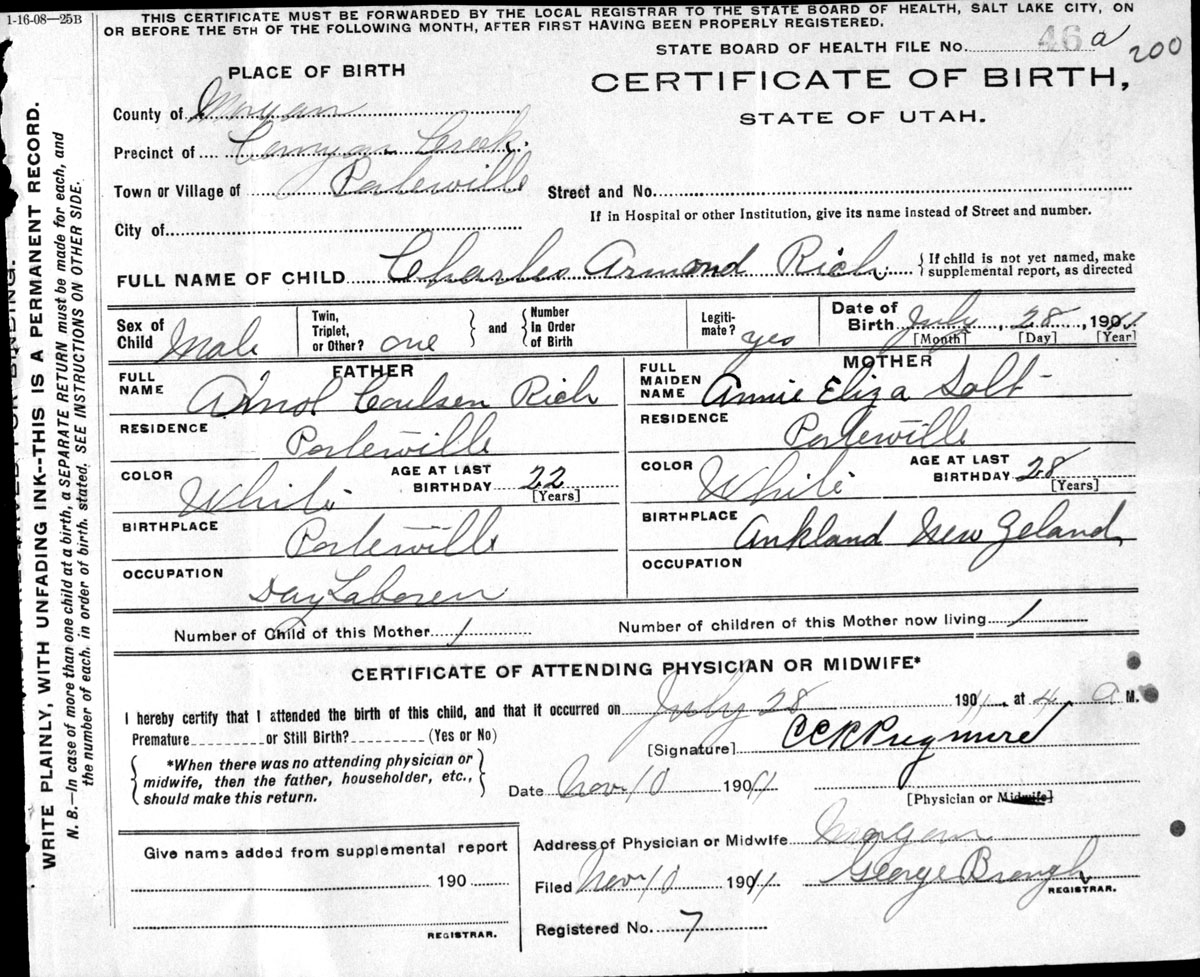 1-16-08—25B
THIS CERTIFICATE MUST BE FORWARDED BY THE LOCAL REGISTRAR TO THE STATE BOARD OF HEALTH, SALT LAKE CITY, ON
OR BEFORE THE 5TH OF THE FOLLOWING MONTH, AFTER FIRST HAVING BEEN PROPERLY REGISTERED.
STATE BOARD OF HEALTH FILE No. 46 a 200
PLACE OF BIRTH
CERTIFICATE OF BIRTH,
STATE OF UTAH.
County of Morgan
Precinct of Cannyon Creek.
Town or Village of Porterville
Street and No.
If in Hospital or other Institution, give its name instead of Street and number.
City of
FULL NAME OF CHILD Charles Armond Rich
{If child is not yet named, make
supplemental report, as directed
Sex of Child Male
Twin, Triplet, or Other? one } and { Number In Order of Birth
Legiti-mate? yes
Date of Birth July, 28, 1911
[Month] [Day] [Year]
FATHER
FULL NAME Arnol Coulsen Rich
RESIDENCE Porterville
COLOR White
AGE AT LAST BIRTHDAY 22
[Years]
BIRTHPLACE Porterville
OCCUPATION Day Laborer
MOTHER
FULL MAIDEN NAME Annie Eliza Solt
RESIDENCE Porterville
COLOR White
AGE AT LAST BIRTHDAY 28
[Years]
BIRTHPLACE Aukland New Zeland,
OCCUPATION
Number of Child of this Mother 1
Number of children of this Mother now living 1
CERTIFICATE OF ATTENDING PHYSICIAN OR MIDWIFE*
I hereby certify that I attended the birth of this child, and that it occurred on July 28 1911, at 4 a M.
Premature or Still Birth? (Yes or No)
[Signature]
{ *When there was no attending physician or
midwife, then the father, householder, etc.,
should make this return. }
Date Nov 10 1911
[Physician or Midwife]
Give name added from supplemental report
190
REGISTRAR.
Address of Physician or Midwife Morgan
Filed Nov 10 1911 George Brough
REGISTRAR.
Registered No. 7
WRITE PLAINLY, WITH UNFADING INK--THIS IS A PERMANENT RECORD.
N. B.—In case of more than one child at a birth, a SEPARATE RETURN must be made for each, and
the number of each, in order of birth, stated. SEE INSTRUCTIONS ON OTHER SIDE.